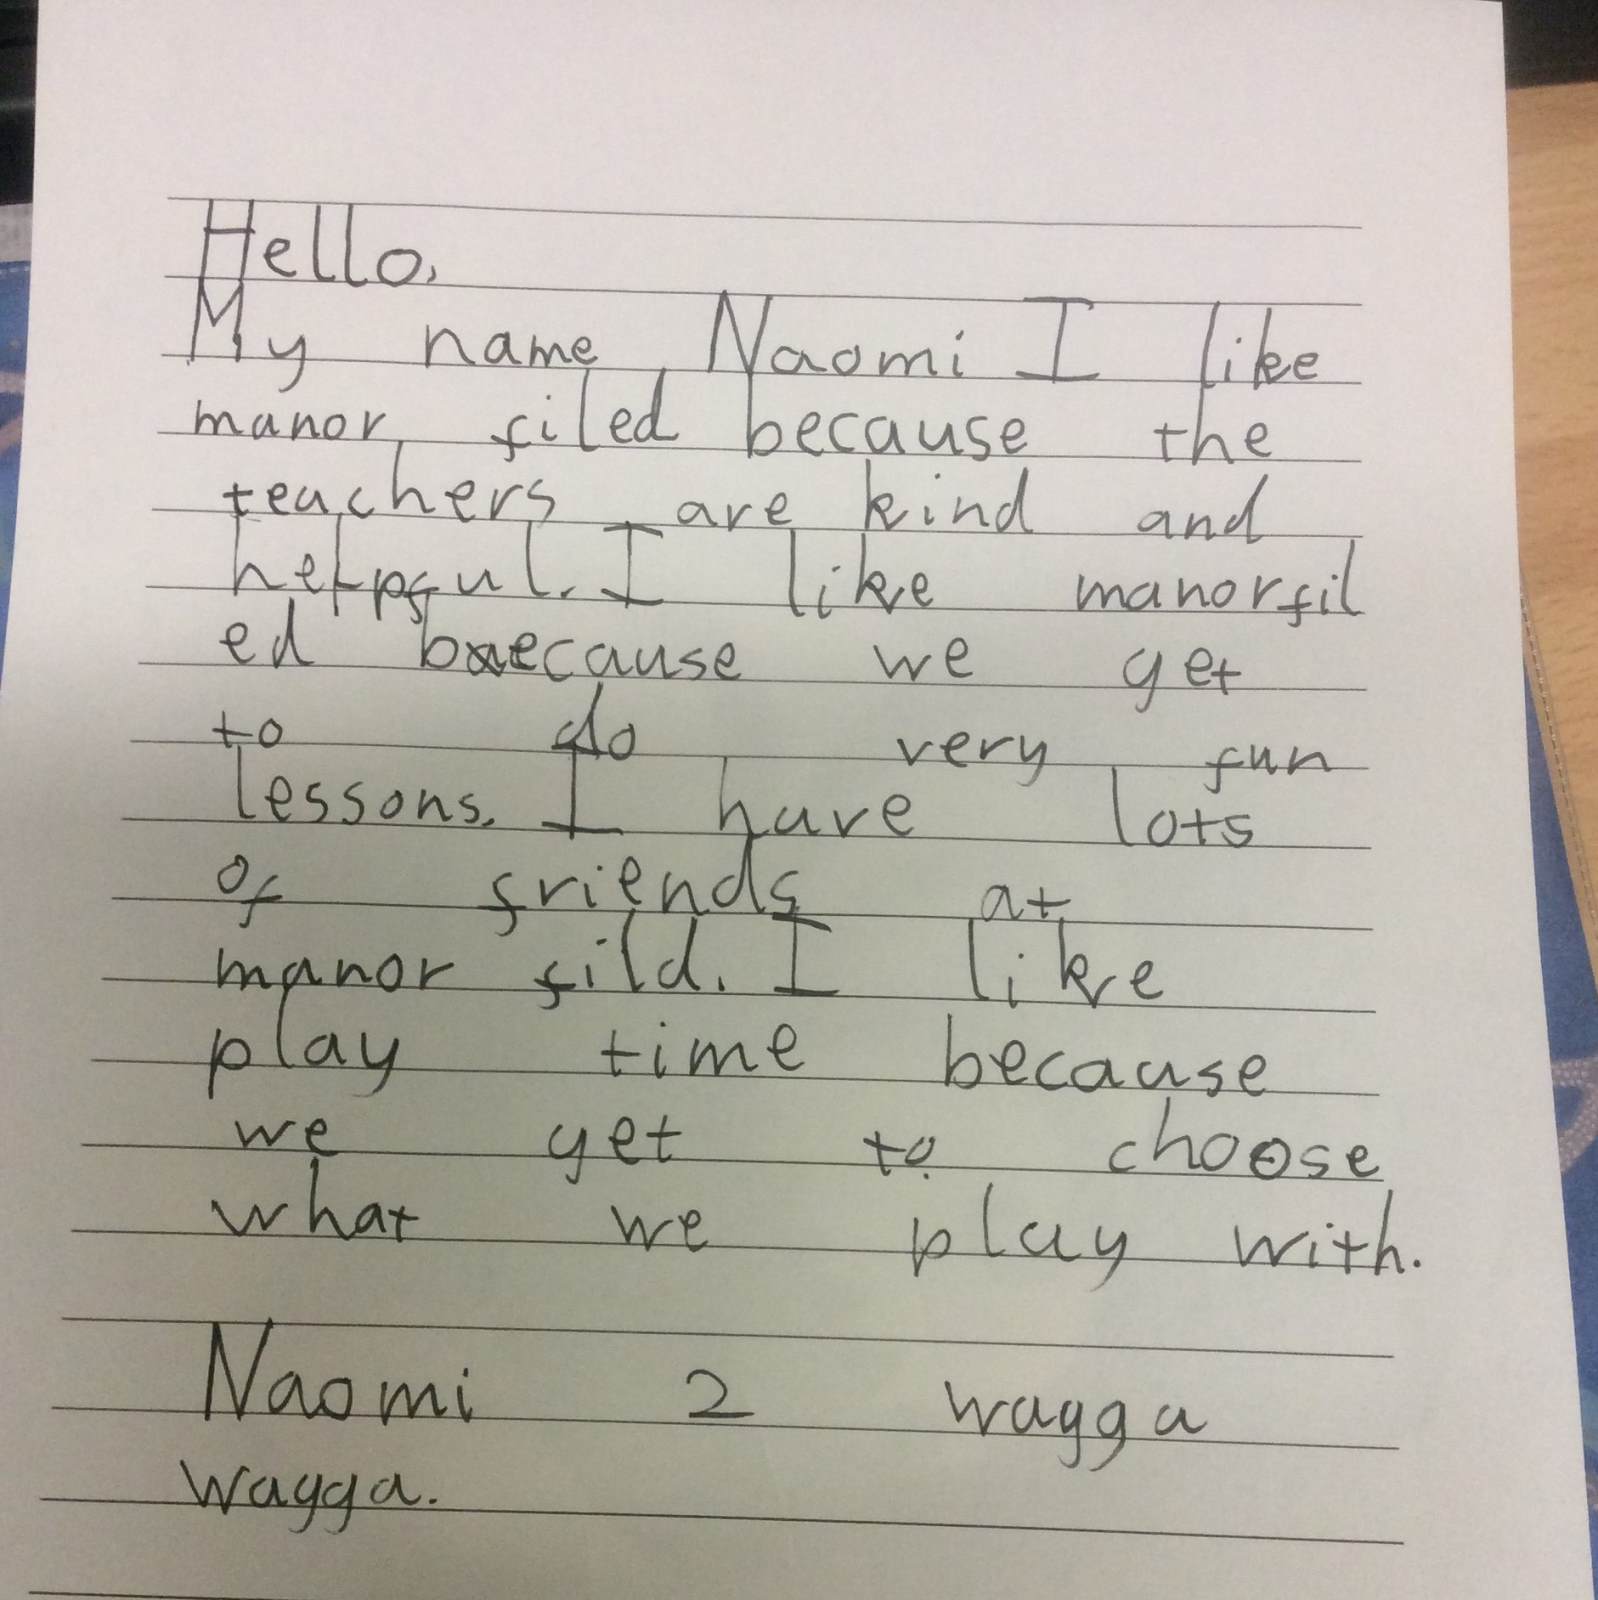 Hello,
My name Naomi I like
manor filed because the
teachers are kind and
helpful. I like manorfil
ed because we get
to do very fun
lessons. I have lots
of friends at
manor fild. I like
play time because
we get to choose
what we play with.
Naomi 2 wagga
wagga.